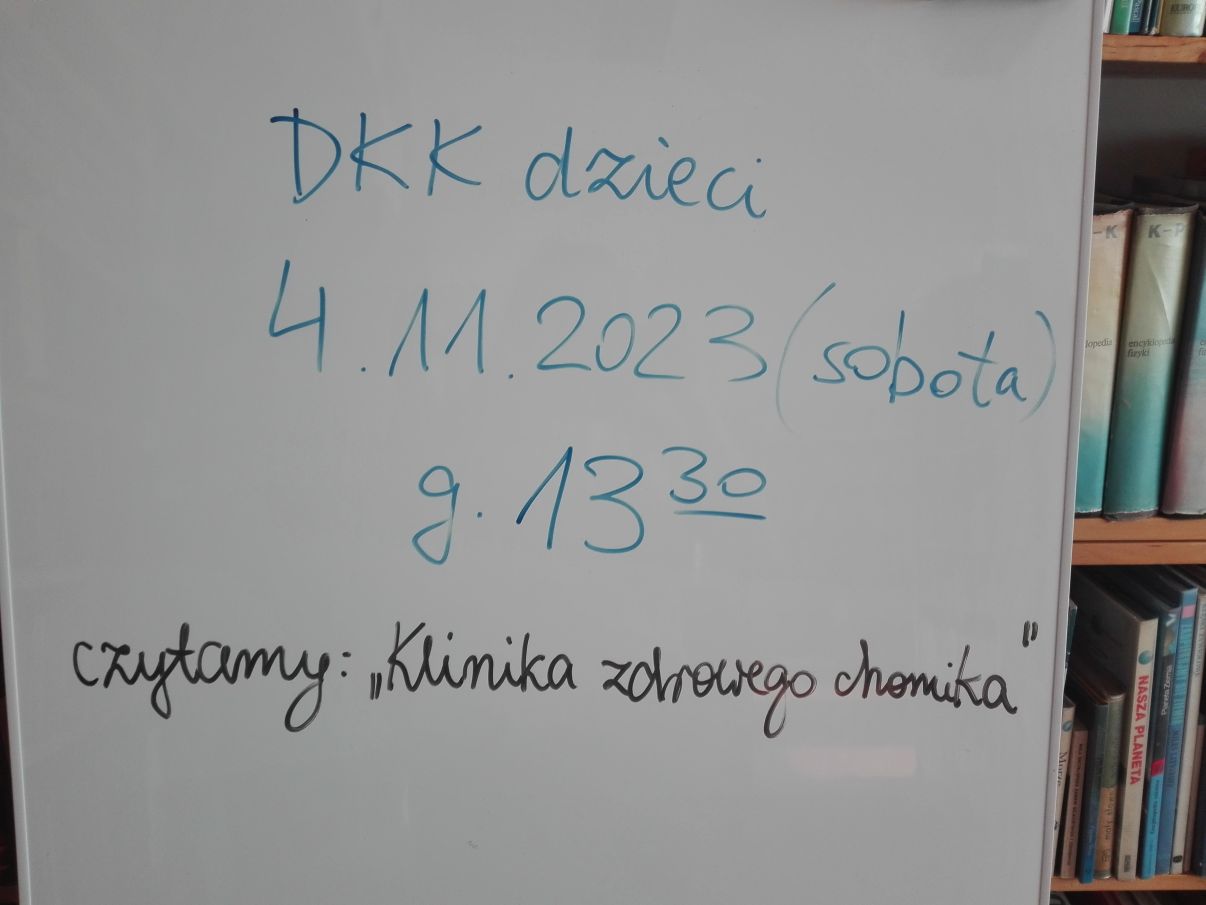 DKK dzieci
4.11.2023 (sobota)
g. 13 30
czytamy: „Klinika zdrowego chomika"
EUROP
-K
K-P
lopedia
encyklopedia
fizyki
NASZA PLANETA